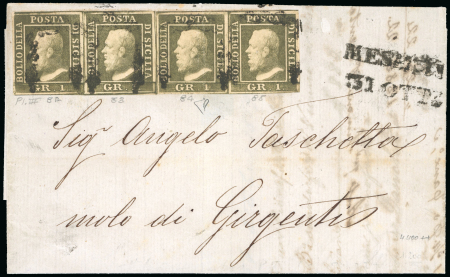 BOLLO DELLA POSTA DI SICILIA GR 1
BOLLO DELLA POSTA DI SICILIA GR 1
BOLLO DELLA POSTA DI SICILIA GR 1
BOLLO DELLA POSTA DI SICILIA GR 1
MESSINA
31 OTT
83
85
Sigr Angelo Taschetta
molo di Girgenti